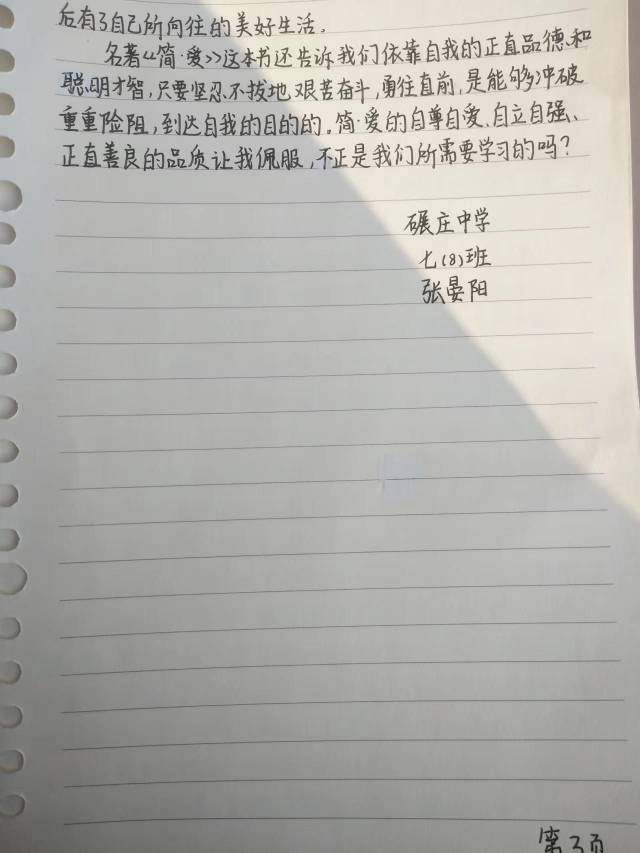 后有了自己所向往的美好生活。
名著《简·爱》这本书还告诉我们依靠自我的正直品德、和
聪明才智,只要坚忍不拔地艰苦奋斗,勇往直前,是能够冲破
重重险阻,到达自我的目的的。简·爱的自尊自爱、自立自强、
正直善良的品质让我佩服,不正是我们所需要学习的吗?
碾庄中学
七(8)班
张晏阳
第3页